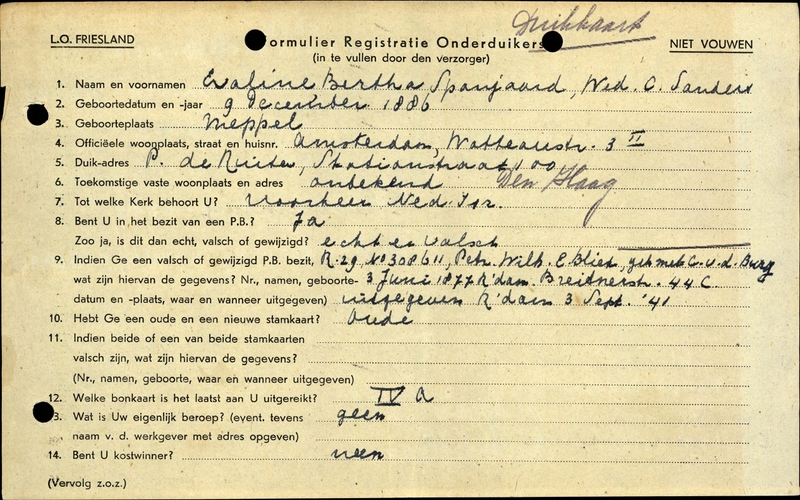 Duikkaart
L.O. FRIESLAND
Formulier Registratie Onderduikers
NIET VOUWEN
(in te vullen door den verzorger)
1. Naam en voornamen Evaline Bertha Spanjaard, Wed. C. Sanders
2. Geboortedatum en -jaar 9 December 1886
3. Geboorteplaats Meppel
4. Officiëele woonplaats, straat en huisnr. Amsterdam, Watteaustr. 3 II
5. Duik-adres P. de Ruiter, Stationstraat 100
6. Toekomstige vaste woonplaats en adres onbekend Den Haag
7. Tot welke Kerk behoort U? Voorheen Ned. Isr.
8. Bent U in het bezit van een P.B.? Ja
Zoo ja, is dit dan echt, valsch of gewijzigd? echt en valsch
9. Indien Ge een valsch of gewijzigd P.B. bezit, R. 29 No 308611, Petr. Wilh. E. Bliek, geh. met C. v. d. Burg
wat zijn hiervan de gegevens? Nr., namen, geboorte- 3 Juni 1877 R'dam. Breitnerstr. 44 C.
datum en -plaats, waar en wanneer uitgegeven) uitgegeven R'dam 3 Sept. '41
10. Hebt Ge een oude en een nieuwe stamkaart? Oude
11. Indien beide of een van beide stamkaarten
valsch zijn, wat zijn hiervan de gegevens?
(Nr., namen, geboorte, waar en wanneer uitgegeven)
12. Welke bonkaart is het laatst aan U uitgereikt? IV A
13. Wat is Uw eigenlijk beroep? (event. tevens geen
naam v. d. werkgever met adres opgeven)
14. Bent U kostwinner? neen
(Vervolg z.o.z.)